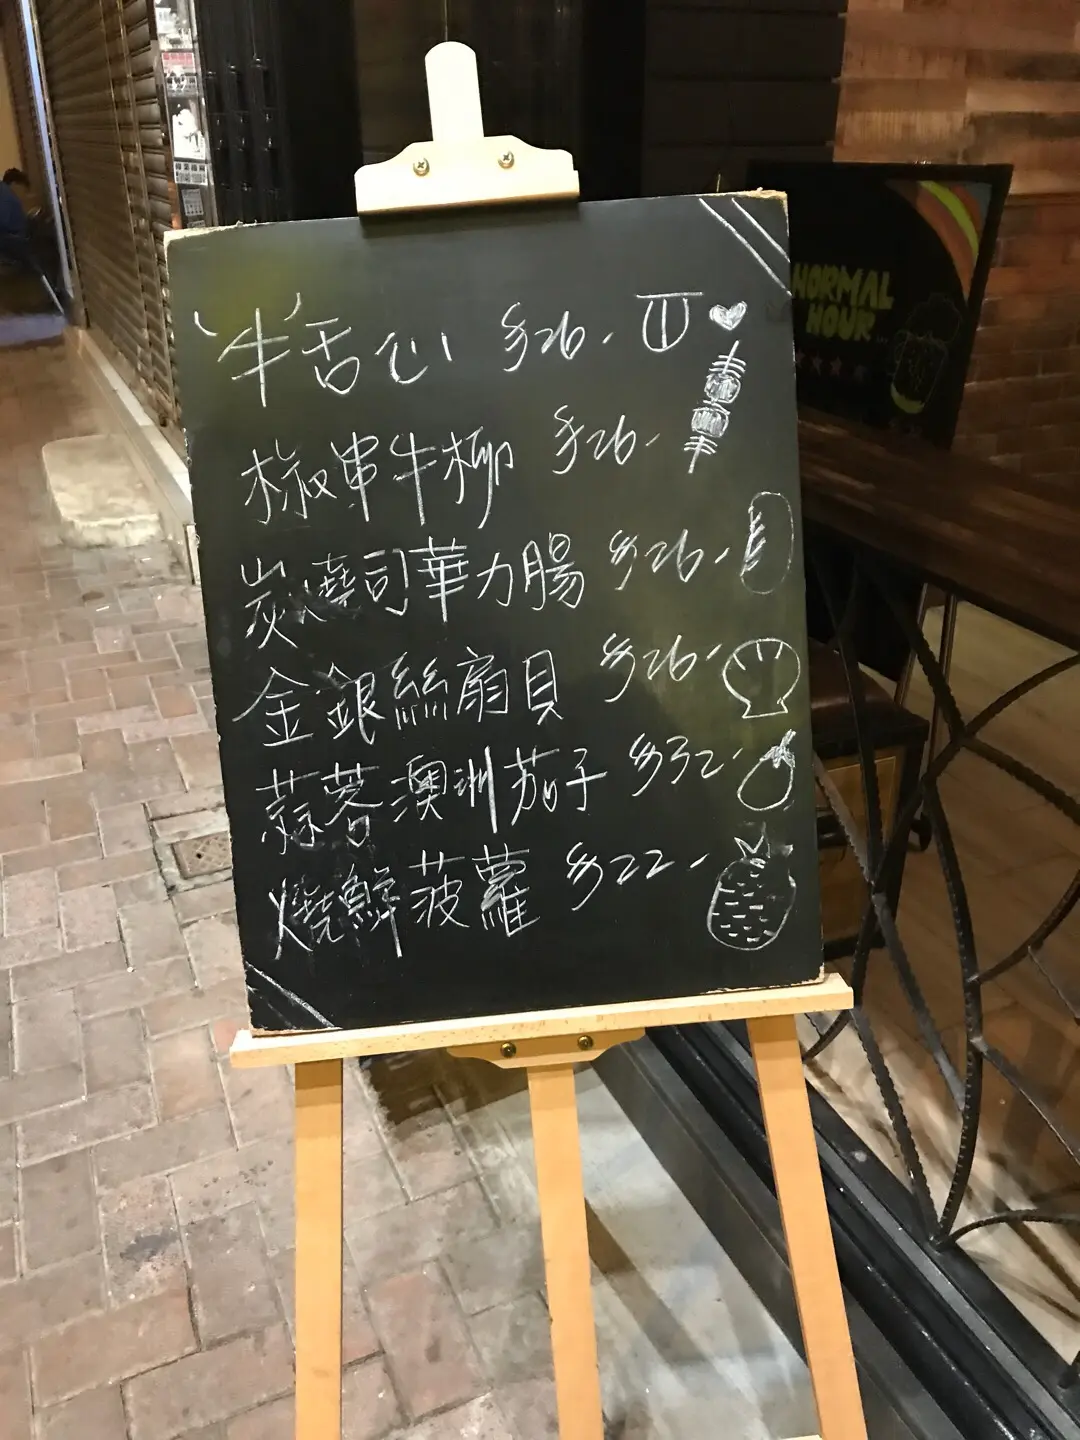 牛舌心 $26.
椒串牛柳 $26.
炭燒司華力腸 $26.
金銀絲扇貝 $26.
蒜蓉澳洲茄子 $32.
燒鮮菠蘿 $22.
NORMAL
HOUR